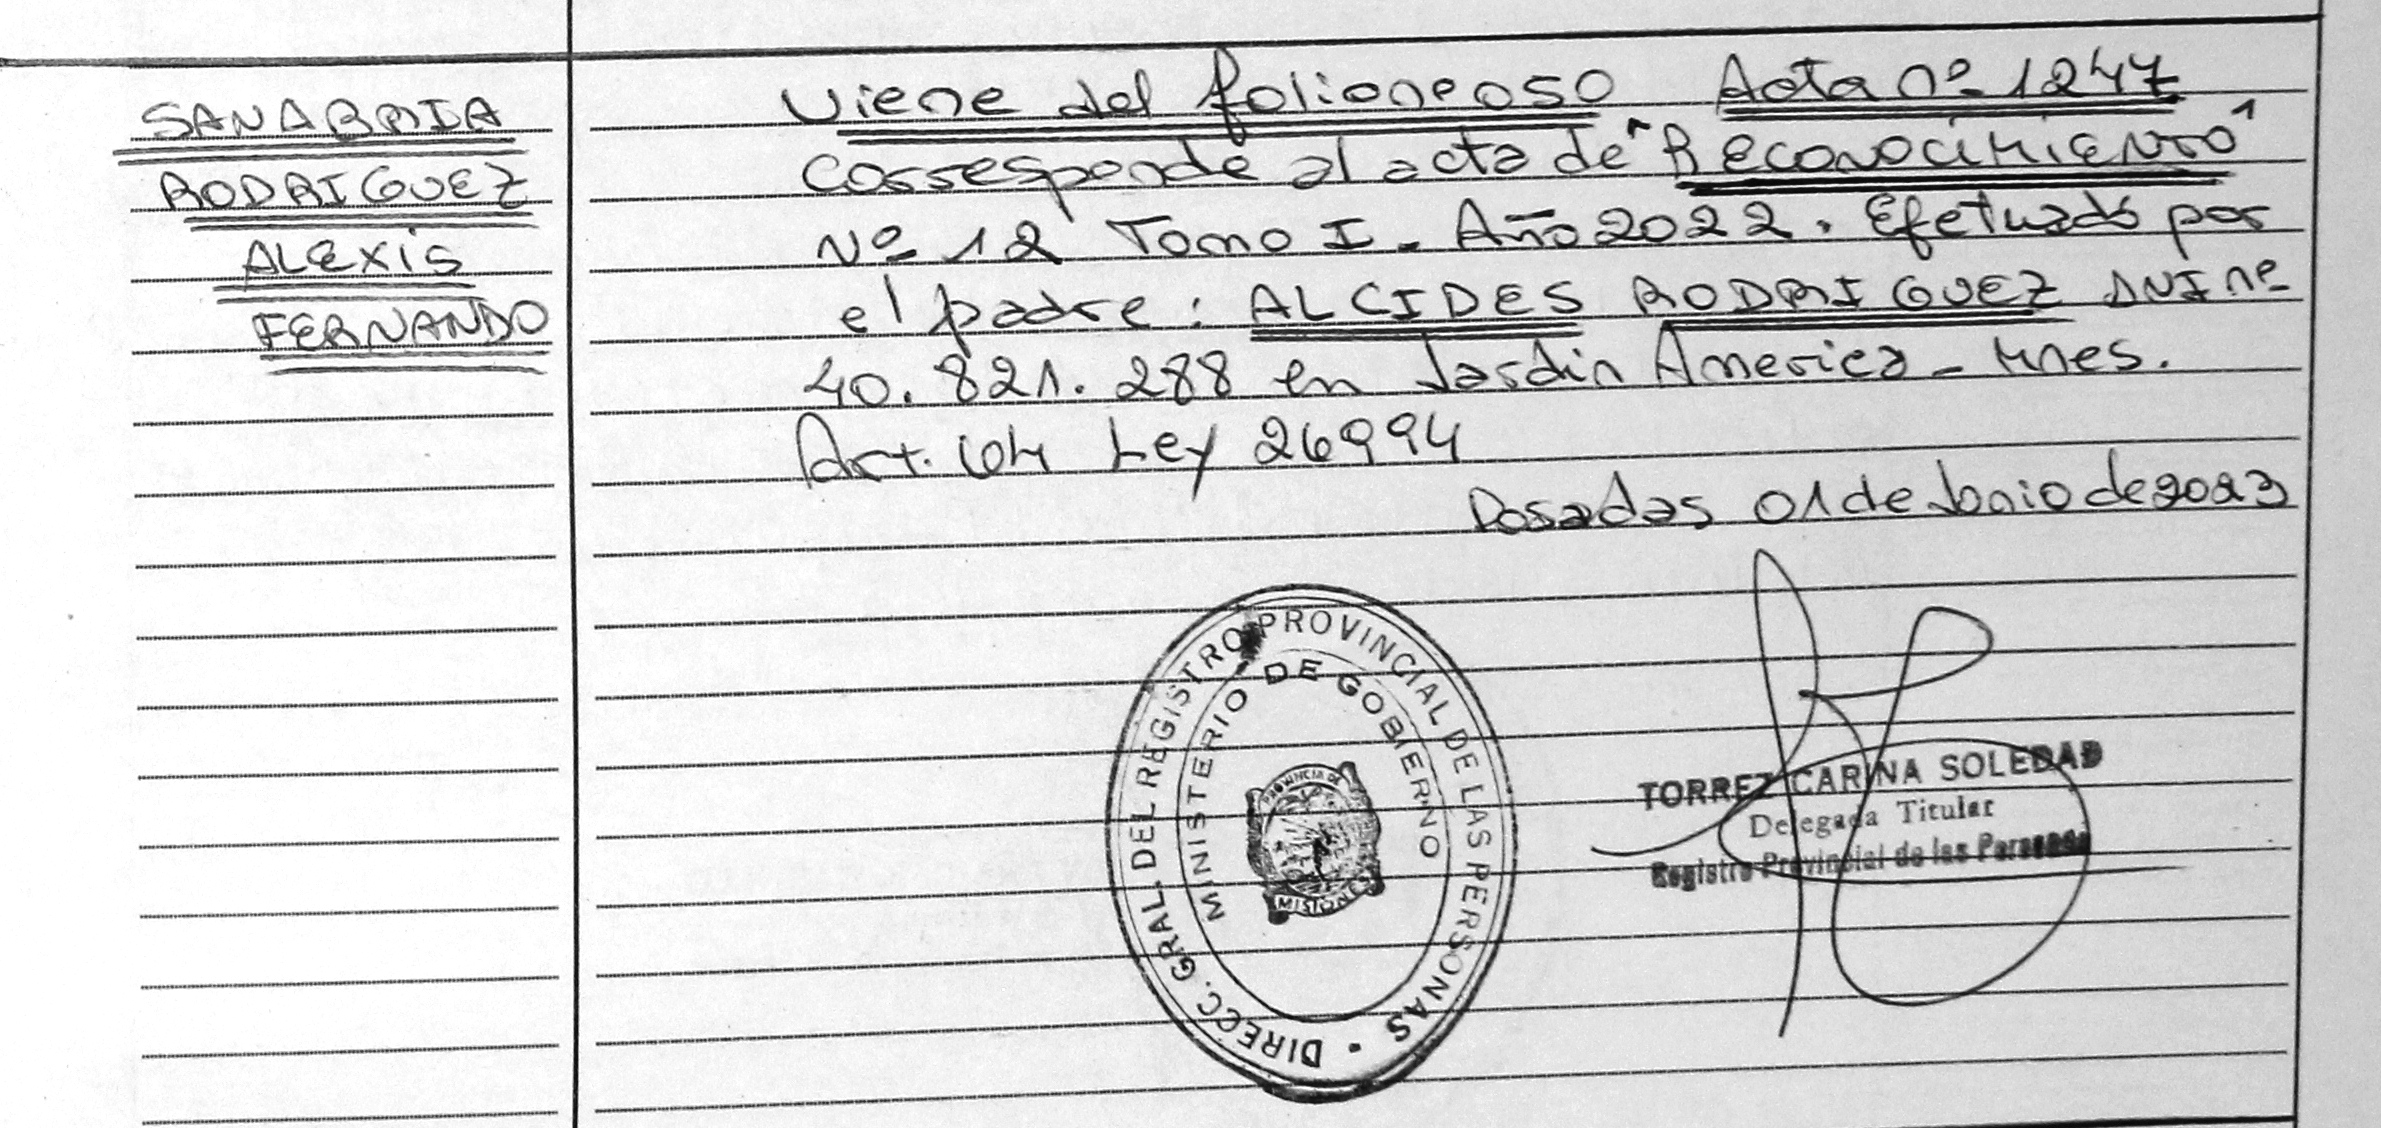 SANABRIA
RODRIGUEZ
ALEXIS
FERNANDO
Viene del folio 050 Acta nº 1247
Corresponde al acta de "RECONOCIMIENTO"
Nº 12 Tomo I - Año 2022. Efetuado por
el padre: ALCIDES RODRIGUEZ DNI nº
40.821.288 en Jardin America - Mnes.
Art. 64 Ley 26994
Posadas 01 de Junio de 2023
DIRECC. GRAL. DEL REGISTRO PROVINCIAL DE LAS PERSONAS
MINISTERIO DE GOBIERNO
PROVINCIA DE
MISIONES
TORREZ CARINA SOLEDAD
Delegada Titular
Registro Provincial de las Personas